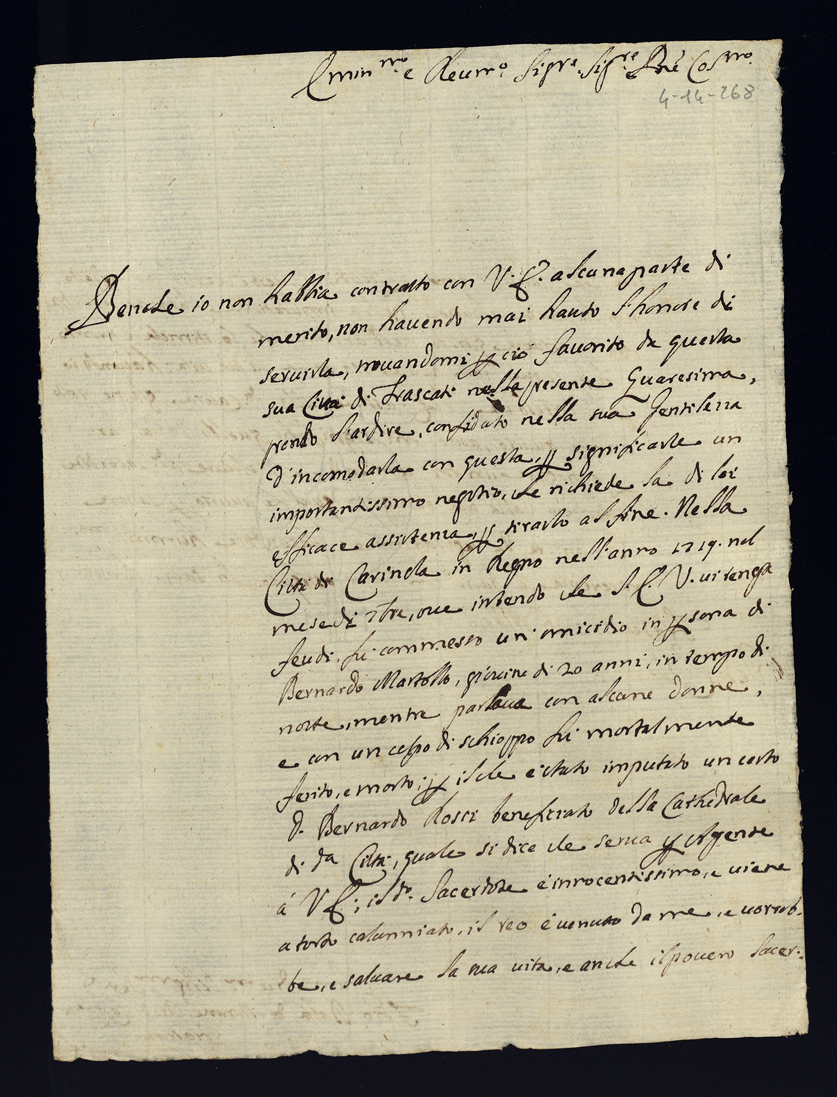 Emin.mo e Reu.mo Sig.re Sig.re Pne Co mo.
4-14-268
Benche io non habbia contratto con V. E. alcuna parte di
merito, non hauendo mai hauto l'honore di
seruirla, trouandomi p cio fauorito da questa
sua Città di Frascati nella presente Quaresima,
prendo l'ardire, confidato nella sua Gentileza
d'incomodarla con questa, p significarle un
importantissimo negotio, che richiede la di lei
efficace assistenza, p tirarlo al fine. Nella
Città di Carinola in Regno nell'anno 1719. nel
mese di 7bre, oue intendo che l'E. V. ui tenga
feudi, fu commesso un'omicidio in psona di
Bernardo Martollo, giouine di 20 anni, in tempo di
notte, mentre parlaua con alcune donne,
e con un colpo di schioppo fu mortalmente
ferito, e morto; p il che è stato imputato un certo
D. Bernardo Rossi beneficiato della Cathedrale
di da Città, quale si dice che serua p Agente
à V. E.; il do. Sacerdote è innocentissimo, e uiene
a torto calunniato, il reo è uenuto da me, e uorreb-
be, e saluare la sua uita, e anche il pouero Sacer-